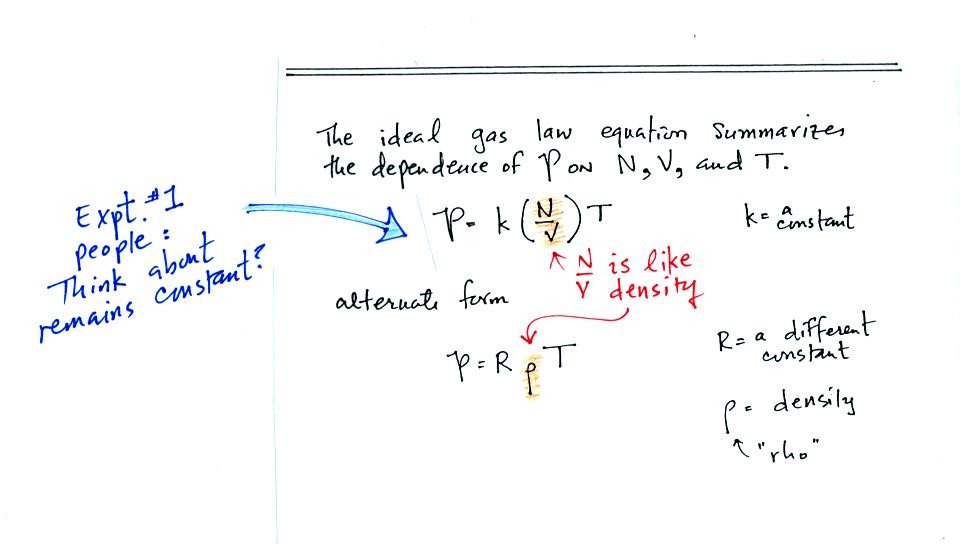 The ideal gas law equation summarizes
the dependence of P on N, V, and T.
Expt. #1
people:
Think about
remains constant?
P = k (N/V) T
k = a constant
↖ N/V is like
density
alternate form
P = R ρ T
R = a different
constant
ρ = density
↖ "rho"